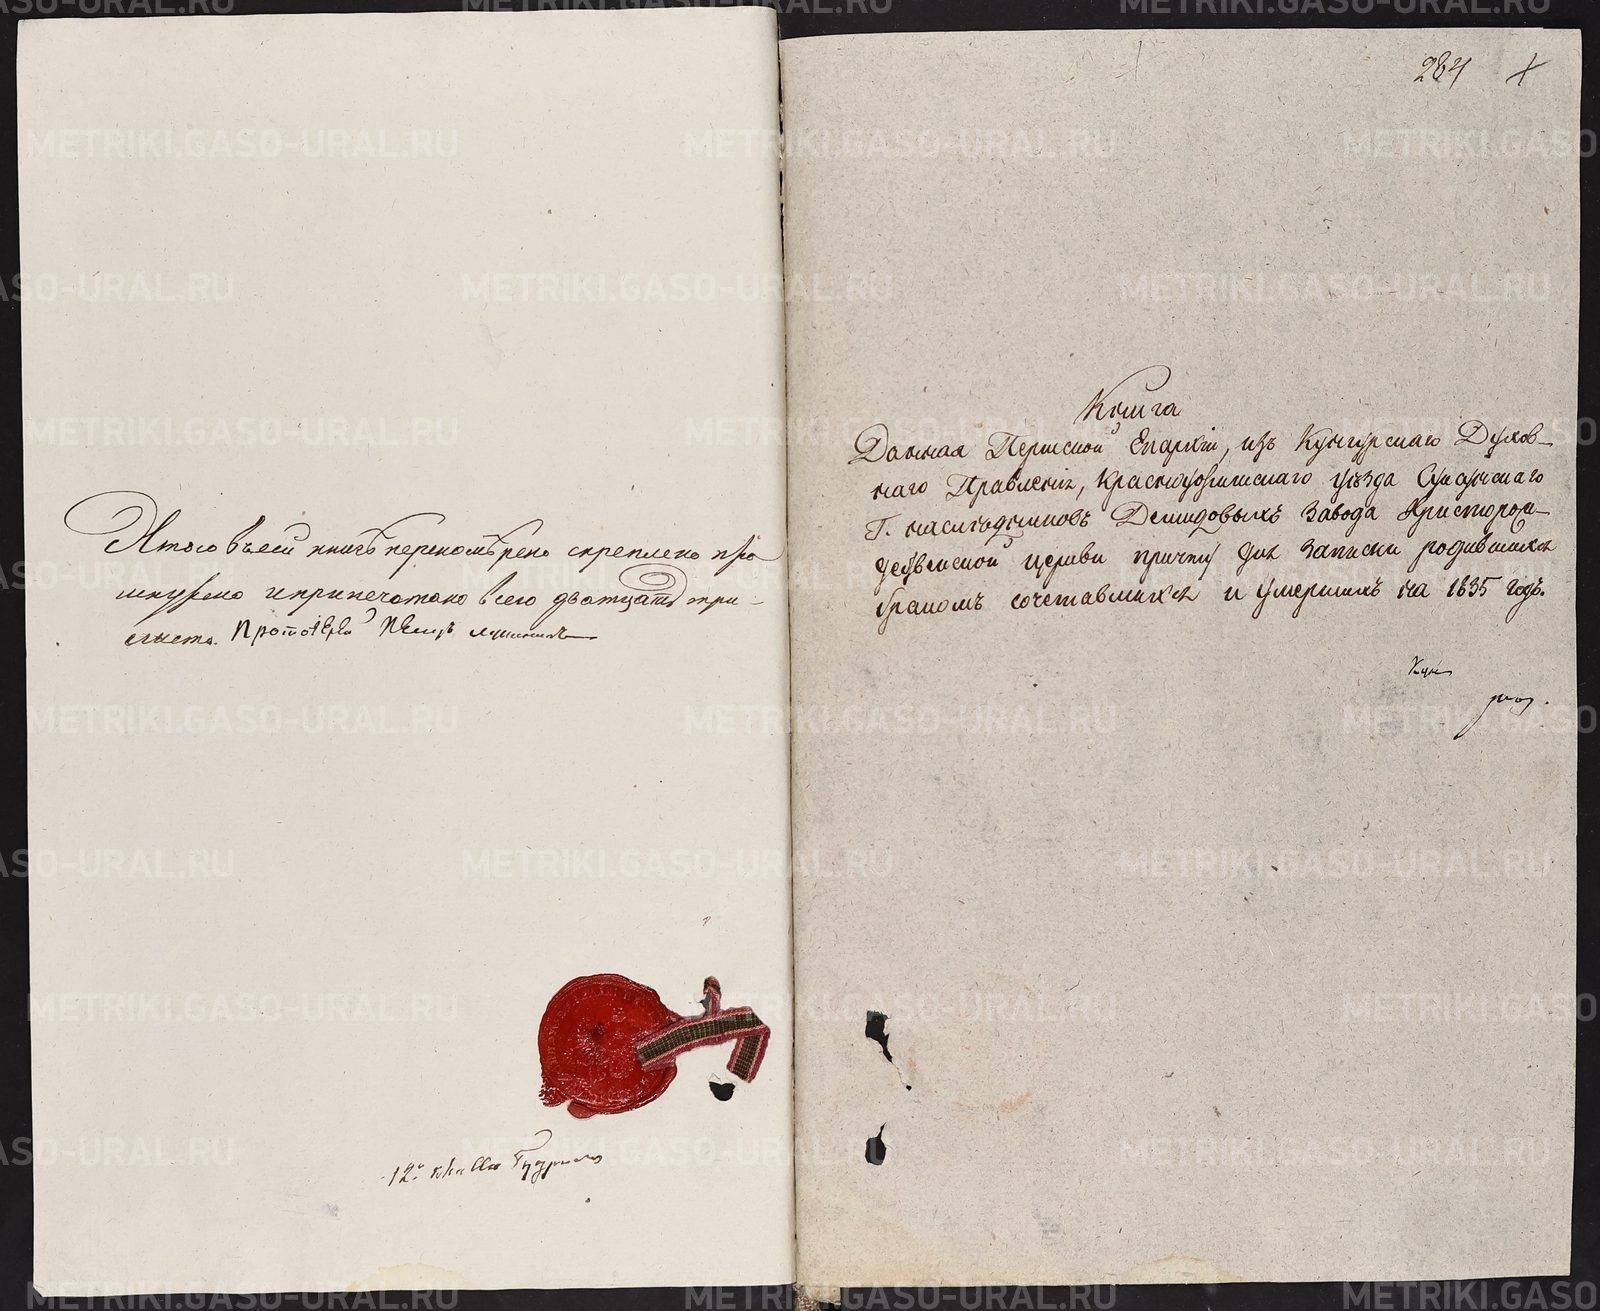 Итого въсей книгѣ перенумѣрено скреплено про
шнурено и припечатано всего дватцать три
листа. Протоіерей
12.
284
Книга
Данная Пермской Епархіи, изъ Кунгурскаго Духов-
наго Правленія, Красноуфимскаго уѣзда Суксунскаго
Г. наслѣдниковъ Демидовыхъ Завода Христорож-
дественской церкви причту для записки родившихся
бракомъ сочетавшихся и умершихъ на 1835 годъ.
METRIKI.GASO-URAL.RU